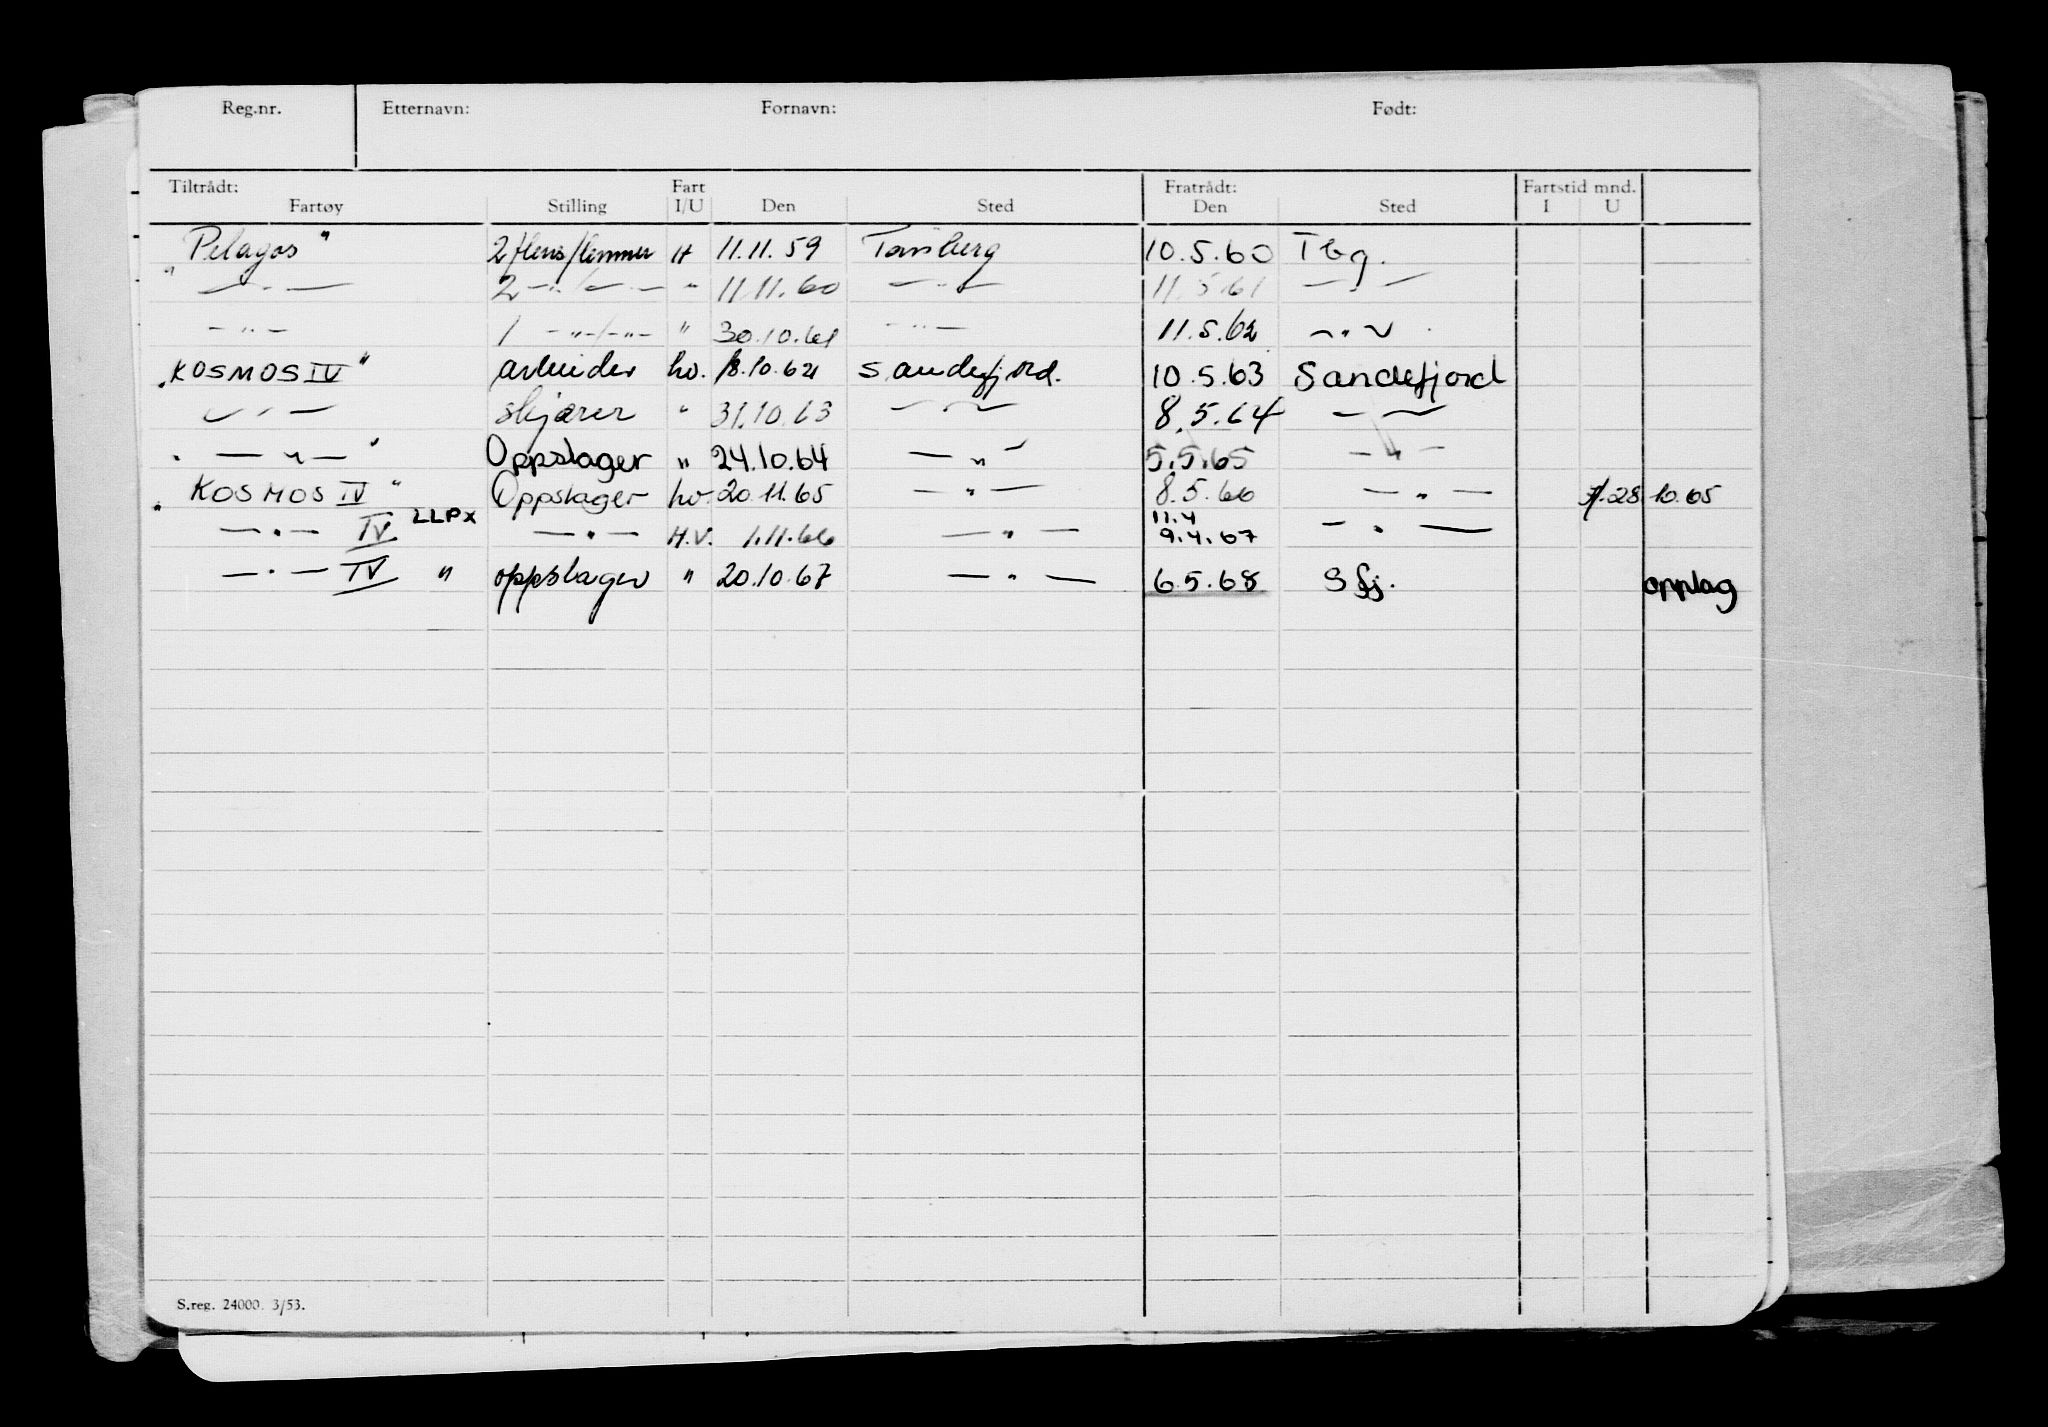 Reg.nr. Etternavn: Fornavn: Født:
Tiltrådt: Fart Fratrådt: Fartstid mnd.
Fartøy Stilling I/U Den Sted Den Sted I U
"Pelagos" 2/flens/lemmer H 11.11.59 Tønsberg 10.5.60 Tbg.
— " — 2 — " / — " — " 11.11.60 — " — 11.5.61 — " —
— " — 1 — " — / — " — " 30.10.61 — " — 11.5.62 — " —
"KOSMOS IV" arbeider hv. 18.10.62 Sandefjord. 10.5.63 Sandefjord
— " — skjærer " 31.10.63 — " — 8.5.64 — " —
" — " — " Oppslager " 24.10.64 — " — 5.5.65 — " —
"KOSMOS IV" Oppslager hv. 20.11.65 — " — 8.5.66 — " — 28.10.65
— " — IV LLPX — " — H.V. 1.11.66 — " — 11.4 9.4.67 — " —
— " — IV " oppslager " 20.10.67 — " — 6.5.68 Sfj. opplag
S.reg. 24000. 3/53.